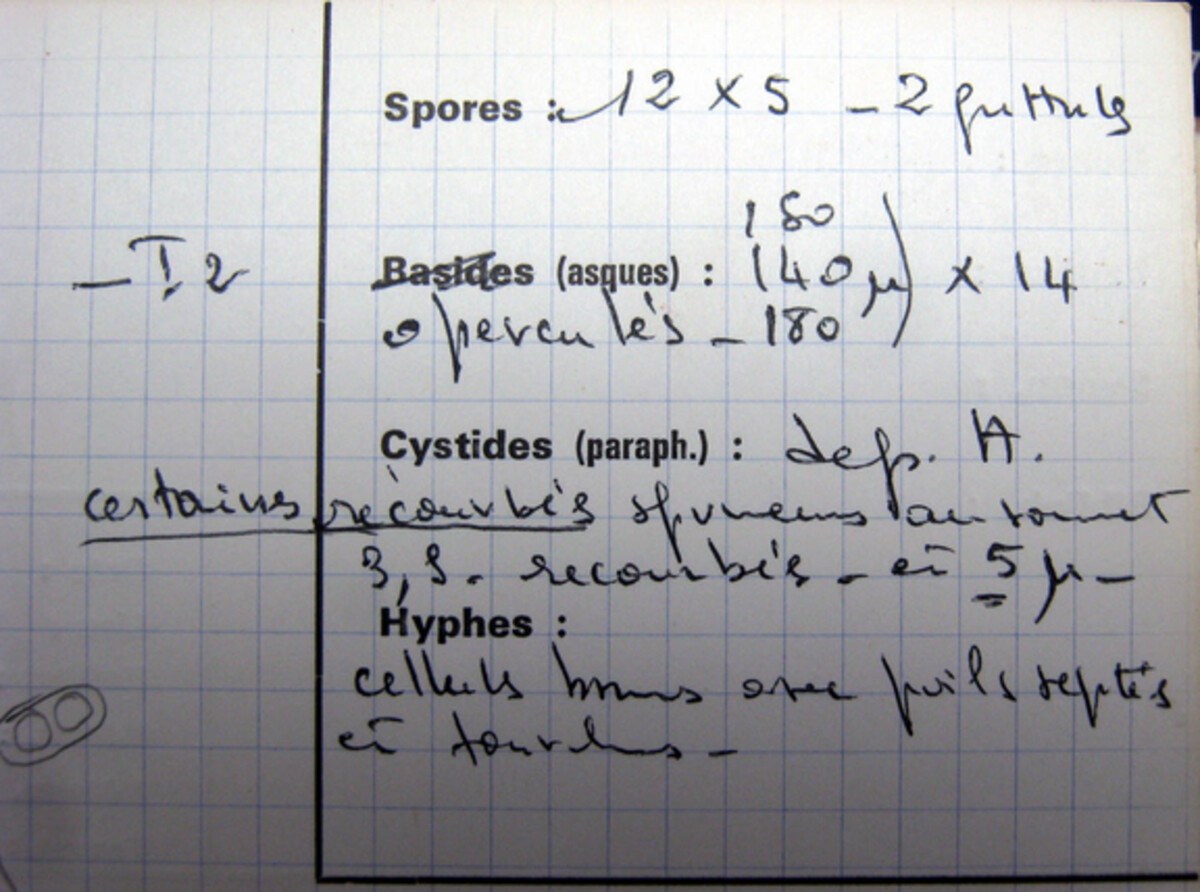 Spores : 12 x 5 - 2 guttules
180
- I 2
Basides (asques) : 140 µ ) x 14
operculés - 180
Cystides (paraph.) : dep. H.
certaines recourbés au sommet
3,8. recourbés - et 5 µ -
Hyphes :
cellules brunes avec poils septés
et fourchus -